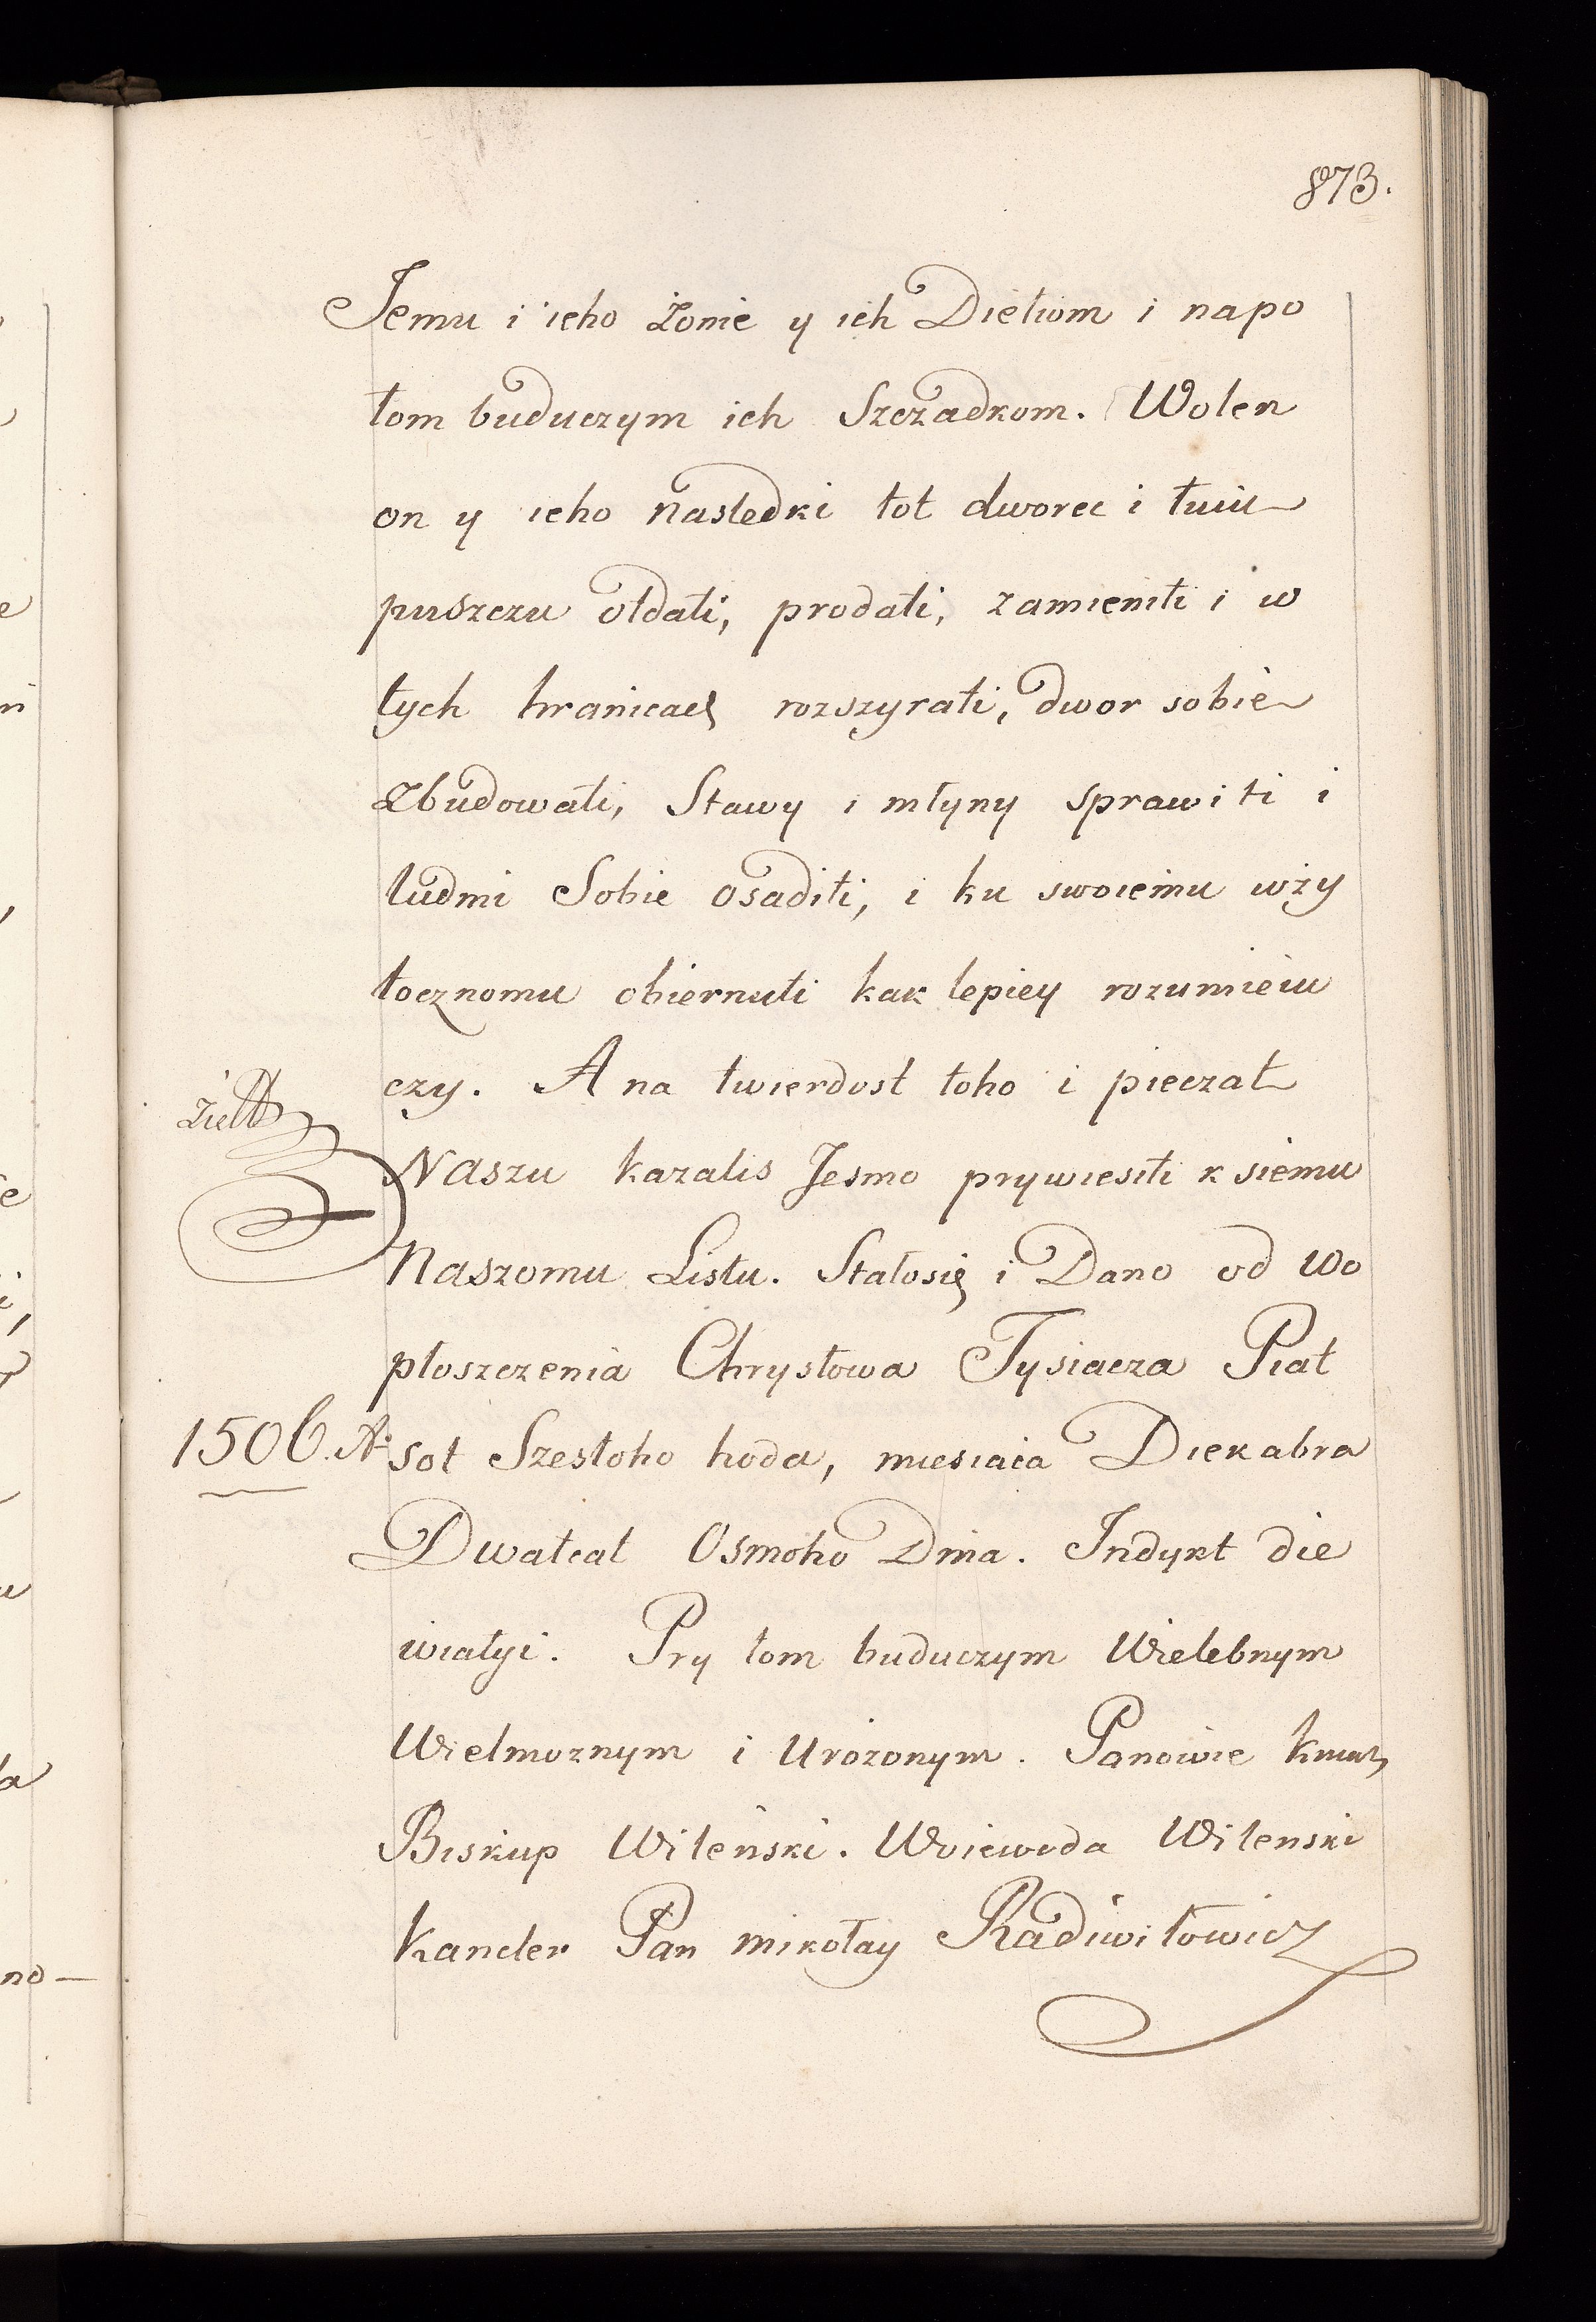 873.
Jemu i ieho żonie y ich Dietiom i napo
tom buduczym ich Szczadkom. Wolen
on y ieho nasledki tot dworec i tuiu
puszczu otdati, prodati, zamieniti i w
tych hranicach rozszyrati, dwor sobie
zbudowati, Stawy i młyny sprawiti i
ludmi Sobie osaditi, i ku swoiemu wży
tocznomu obiernuti kak lepiey rozumieiu
czy. A na twierdost toho i pieczat
Naszu kazalis Jesmo prywiesiti k siemu
Naszomu Listu. Stałosię i Dano od wo
płoszczenia Chrystowa Tysiacza Piat
1506. A:
sot Szestoho hoda, miesiaca Diekabra
Dwatcat Osmoho Dnia. Indykt die
wiatyi. Pry tom buduczym Wielebnym
Wielmoznym i Urożonym. Panowie
Biskup Wileński. Woiewoda Wilenski
Kancler Pan mikołay Radiwiłowicz